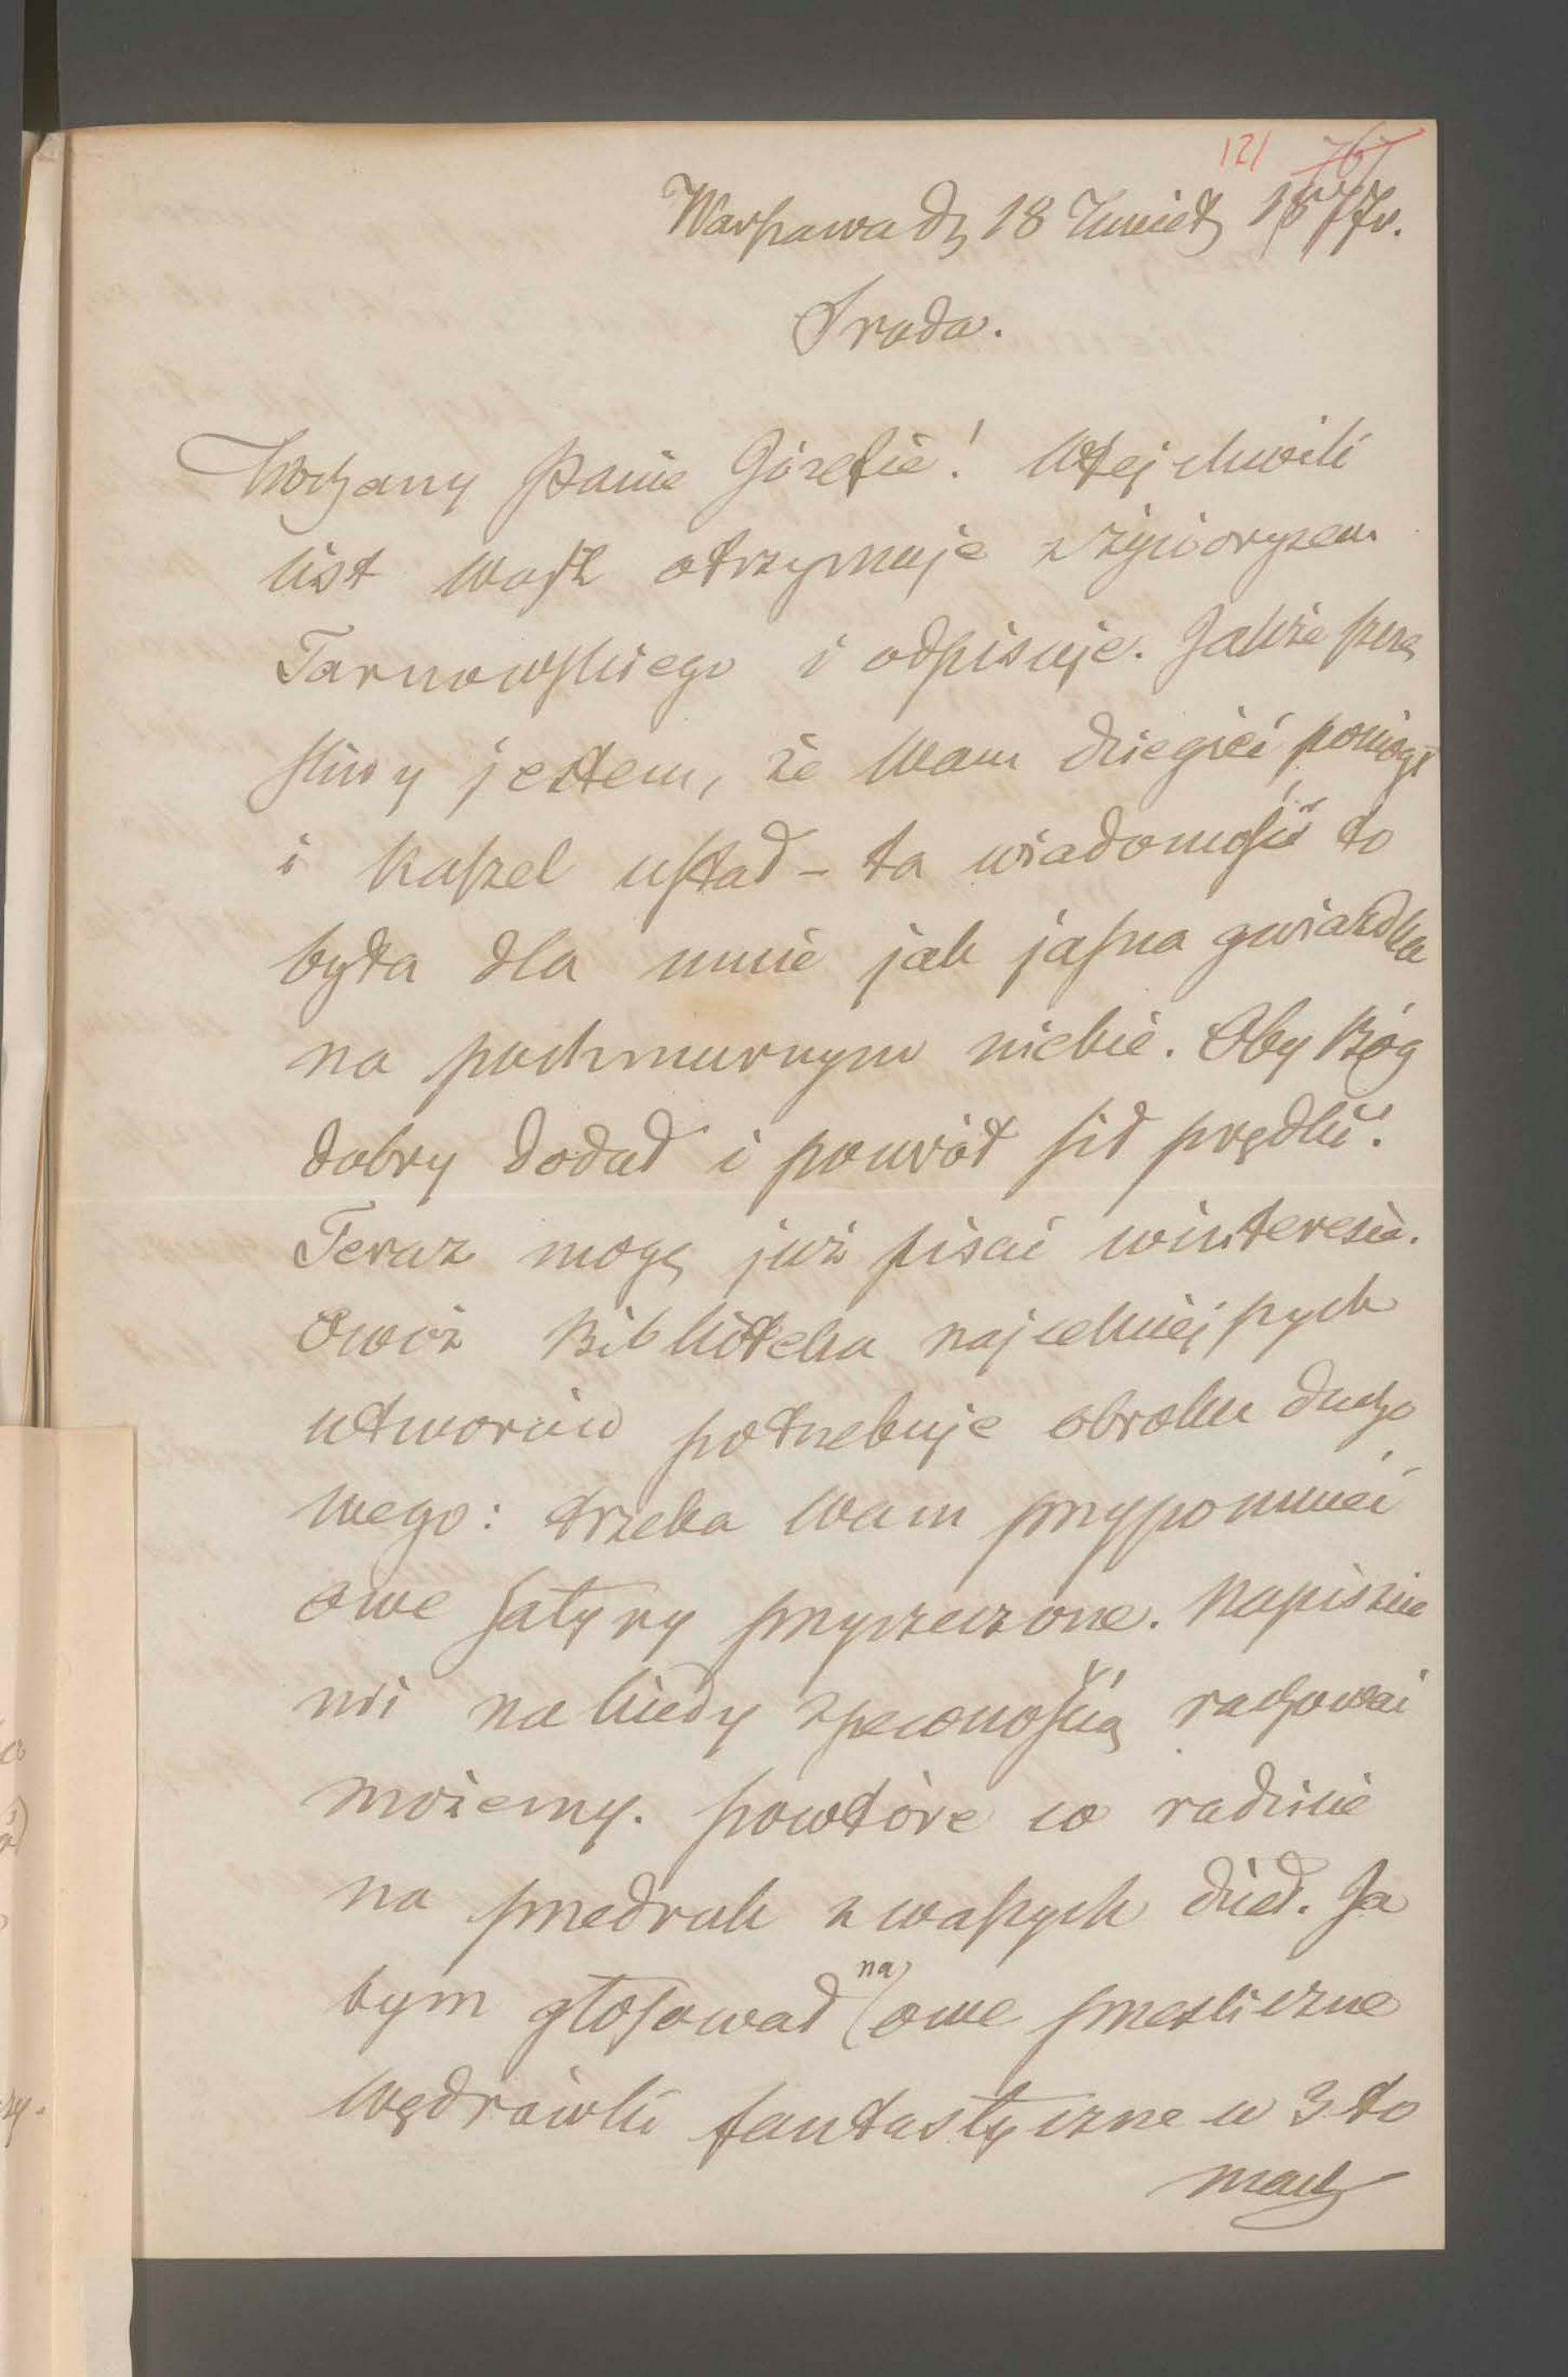 121 767
Warszawa d. 18 Kwiet. 1877 r.
Środa.
Kochany Panie Józefie! W tej chwili
list wasz otrzymuję z życiorysem
Tarnowskiego i odpisuję. Jakże szczę
śliwy jestem, że Wam dziegieć pomógł
i kaszel ustał – ta wiadomość to
była dla mnie jak jasna gwiazdka
na pochmurnym niebie. Oby Bóg
dobry dodał i powrót sił prędki!
Teraz mogę już pisać w interesie.
Owóż Biblioteka najcelniejszych
utworów potrzebuje obroku ducho
wego: trzeba Wam przypomnieć
owe satyry przyrzeczone. Napiszcie
mi na kiedy z pewnością rachować
możemy. Powtóre co radzicie
na przedruk z waszych dzieł. Ja
bym głosował na owe prześliczne
Wędrówki fantastyczne w 3 to
mach